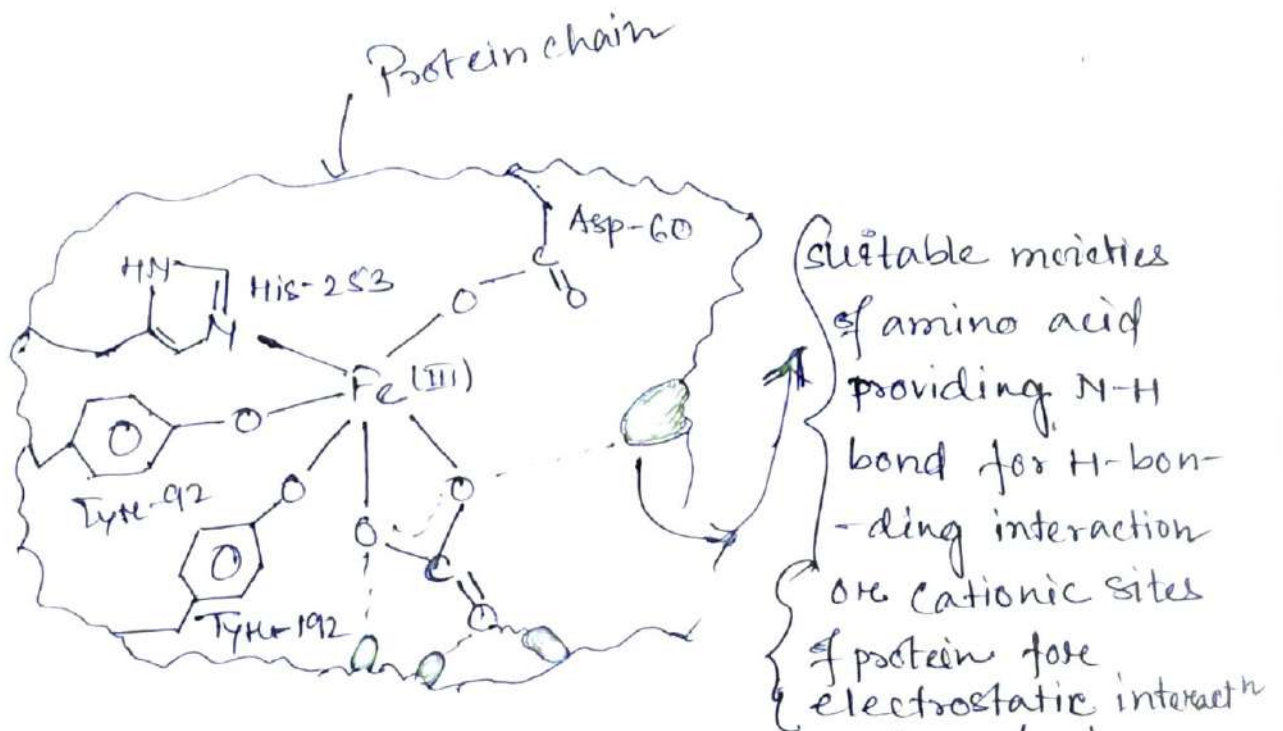 Protein chain
Asp-60
C
O
O
HN
His-253
N
Fe (III)
O
Tyr-92
O
Tyr-192
O
O
C
O
suitable moieties
of amino acid
providing N-H
bond for H-bon-
-ding interaction
or cationic sites
of protein for
electrostatic interactn